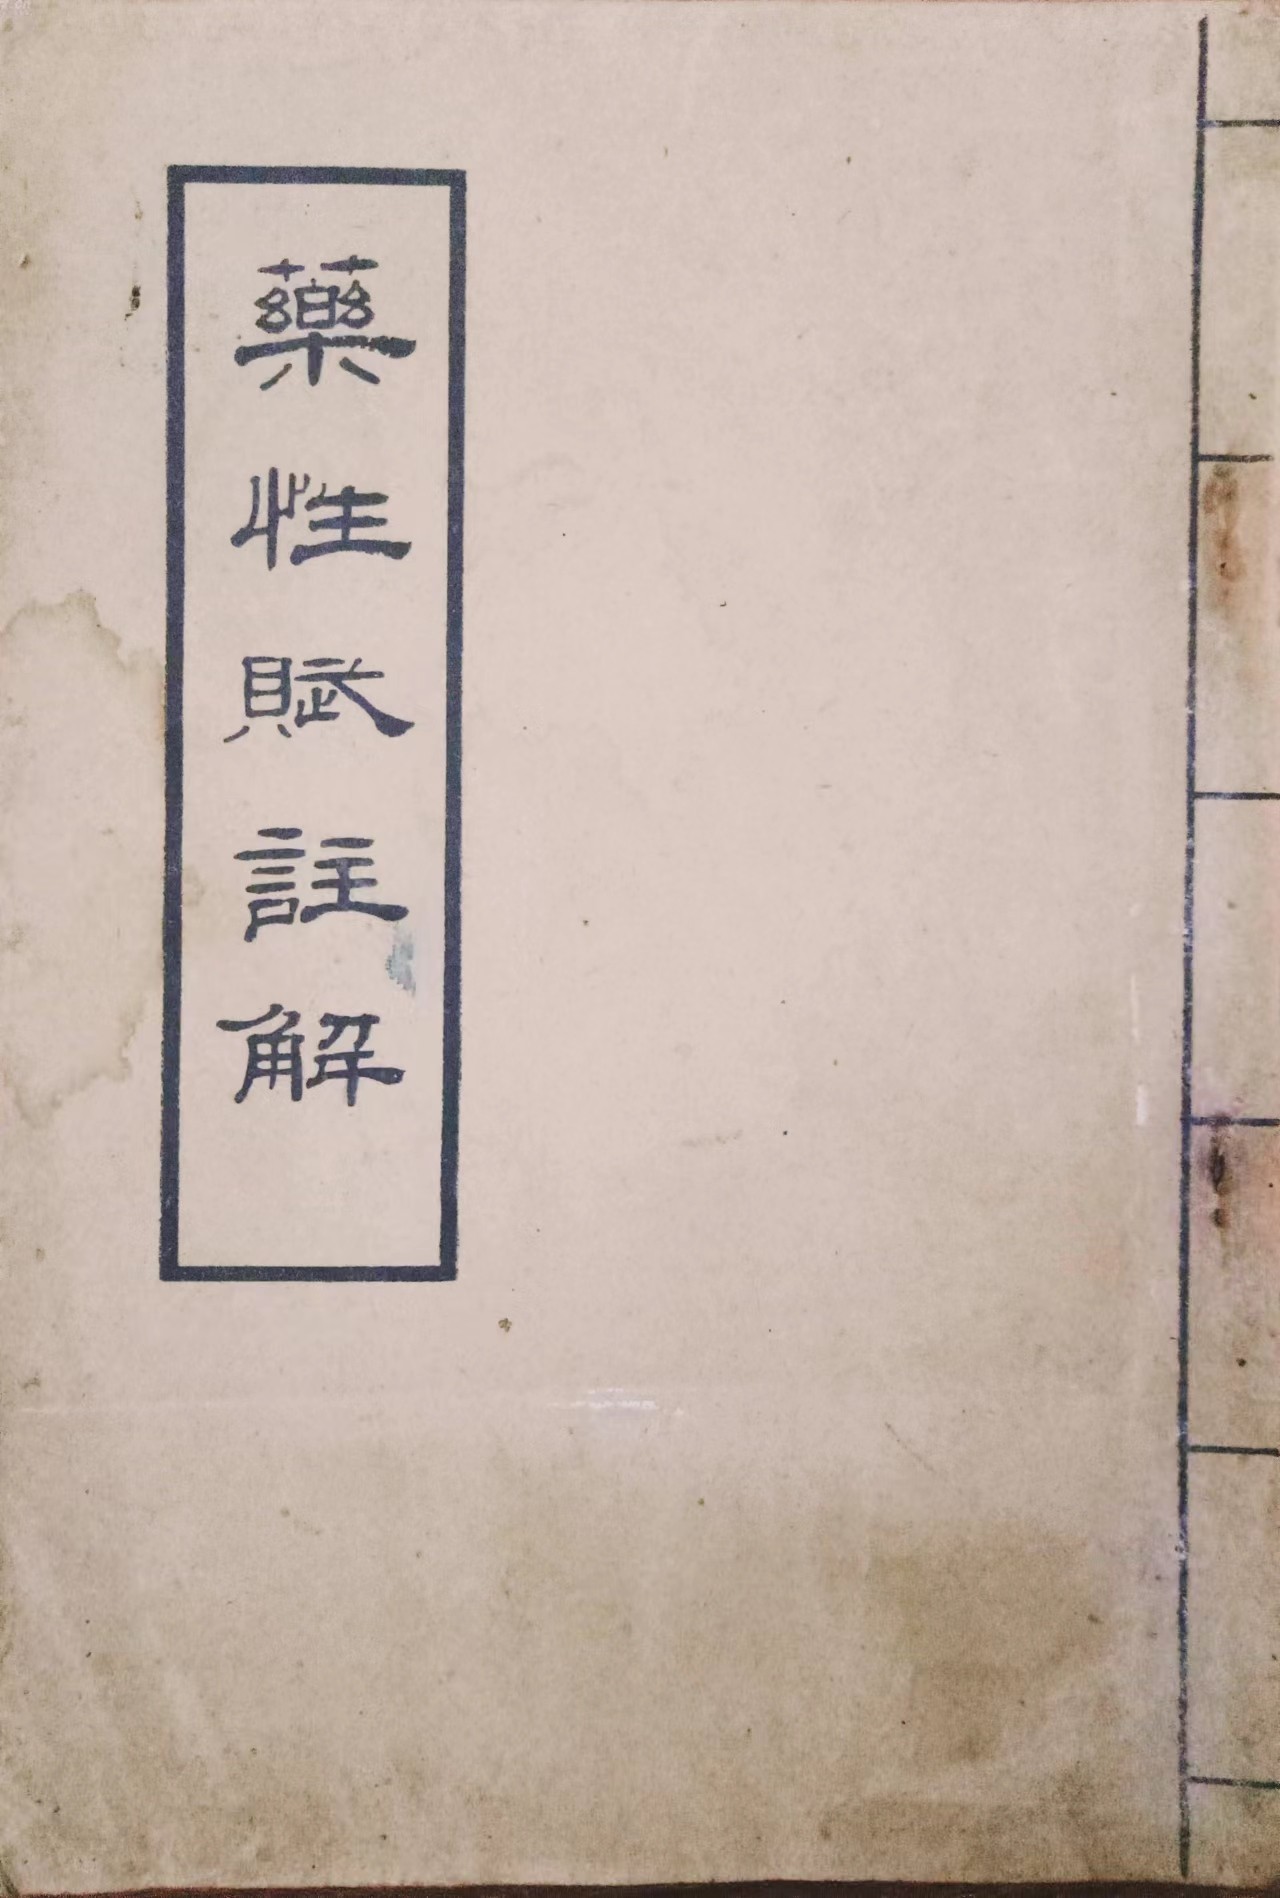 藥性賦註解